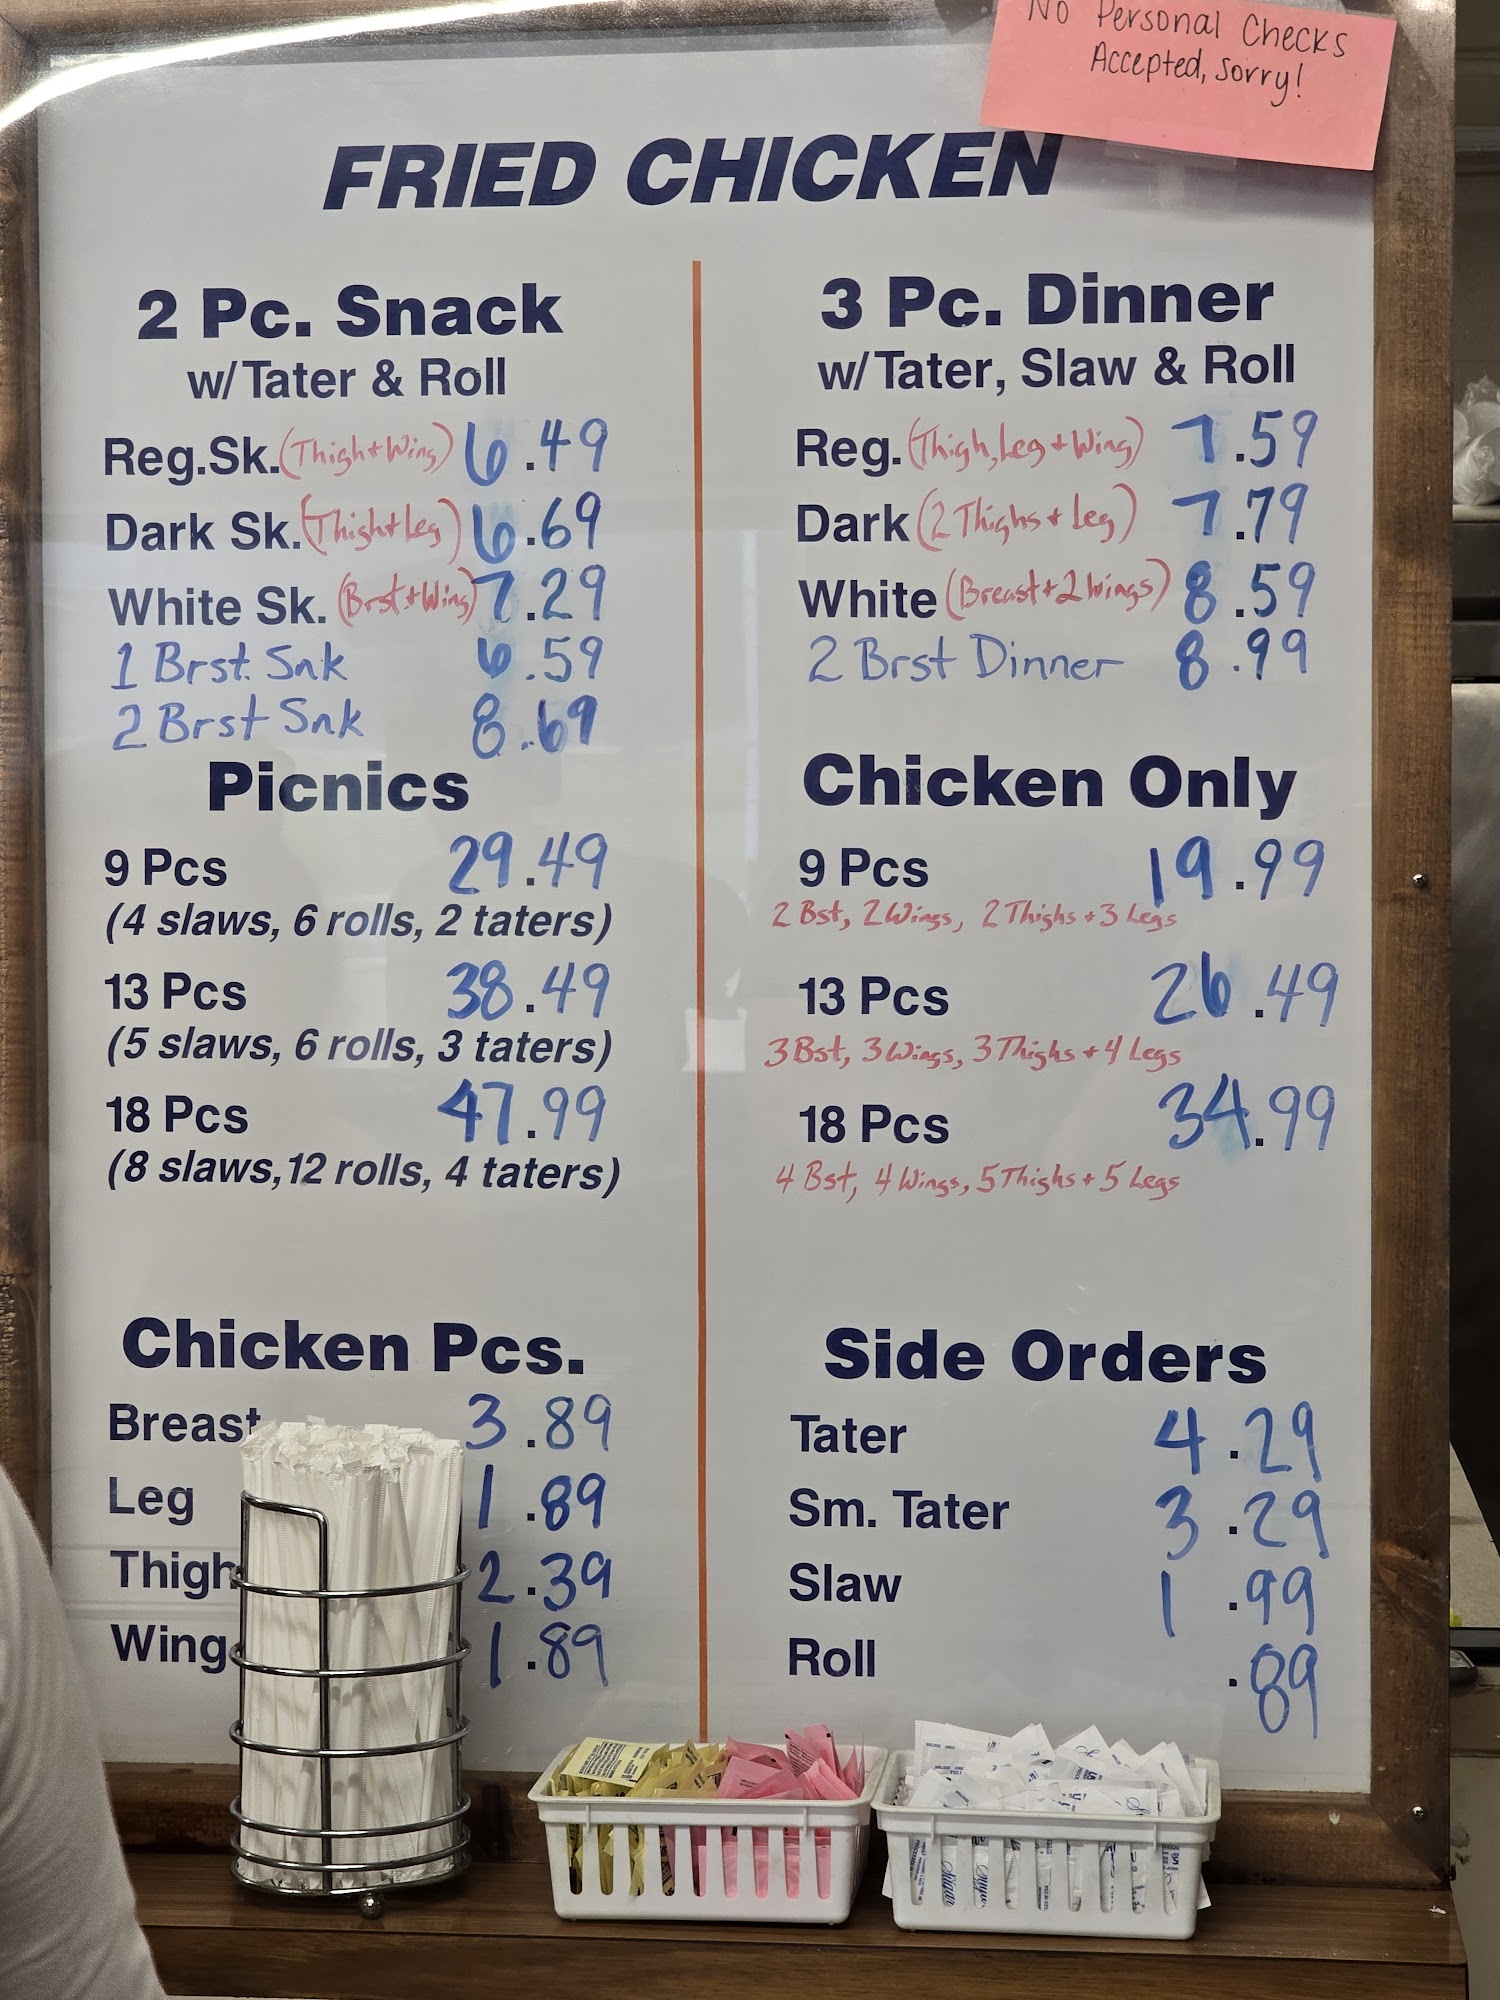 No Personal Checks
Accepted, Sorry!
FRIED CHICKEN
2 Pc. Snack
w/ Tater & Roll
Reg.Sk. (Thigh + Wing) 6.49
Dark Sk. (Thigh + Leg) 6.69
White Sk. (Brst + Wing) 7.29
1 Brst. Snk 6.59
2 Brst Snk 8.69
Picnics
9 Pcs 29.49
(4 slaws, 6 rolls, 2 taters)
13 Pcs 38.49
(5 slaws, 6 rolls, 3 taters)
18 Pcs 47.99
(8 slaws, 12 rolls, 4 taters)
Chicken Pcs.
Breast 3.89
Leg 1.89
Thigh 2.39
Wing 1.89
3 Pc. Dinner
w/ Tater, Slaw & Roll
Reg. (Thigh, Leg + Wing) 7.59
Dark (2 Thighs + Leg) 7.79
White (Breast + 2 Wings) 8.59
2 Brst Dinner 8.99
Chicken Only
9 Pcs 19.99
2 Bst, 2 Wings, 2 Thighs + 3 Legs
13 Pcs 26.49
3 Bst, 3 Wings, 3 Thighs + 4 Legs
18 Pcs 34.99
4 Bst, 4 Wings, 5 Thighs + 5 Legs
Side Orders
Tater 4.29
Sm. Tater 3.29
Slaw 1.99
Roll .89